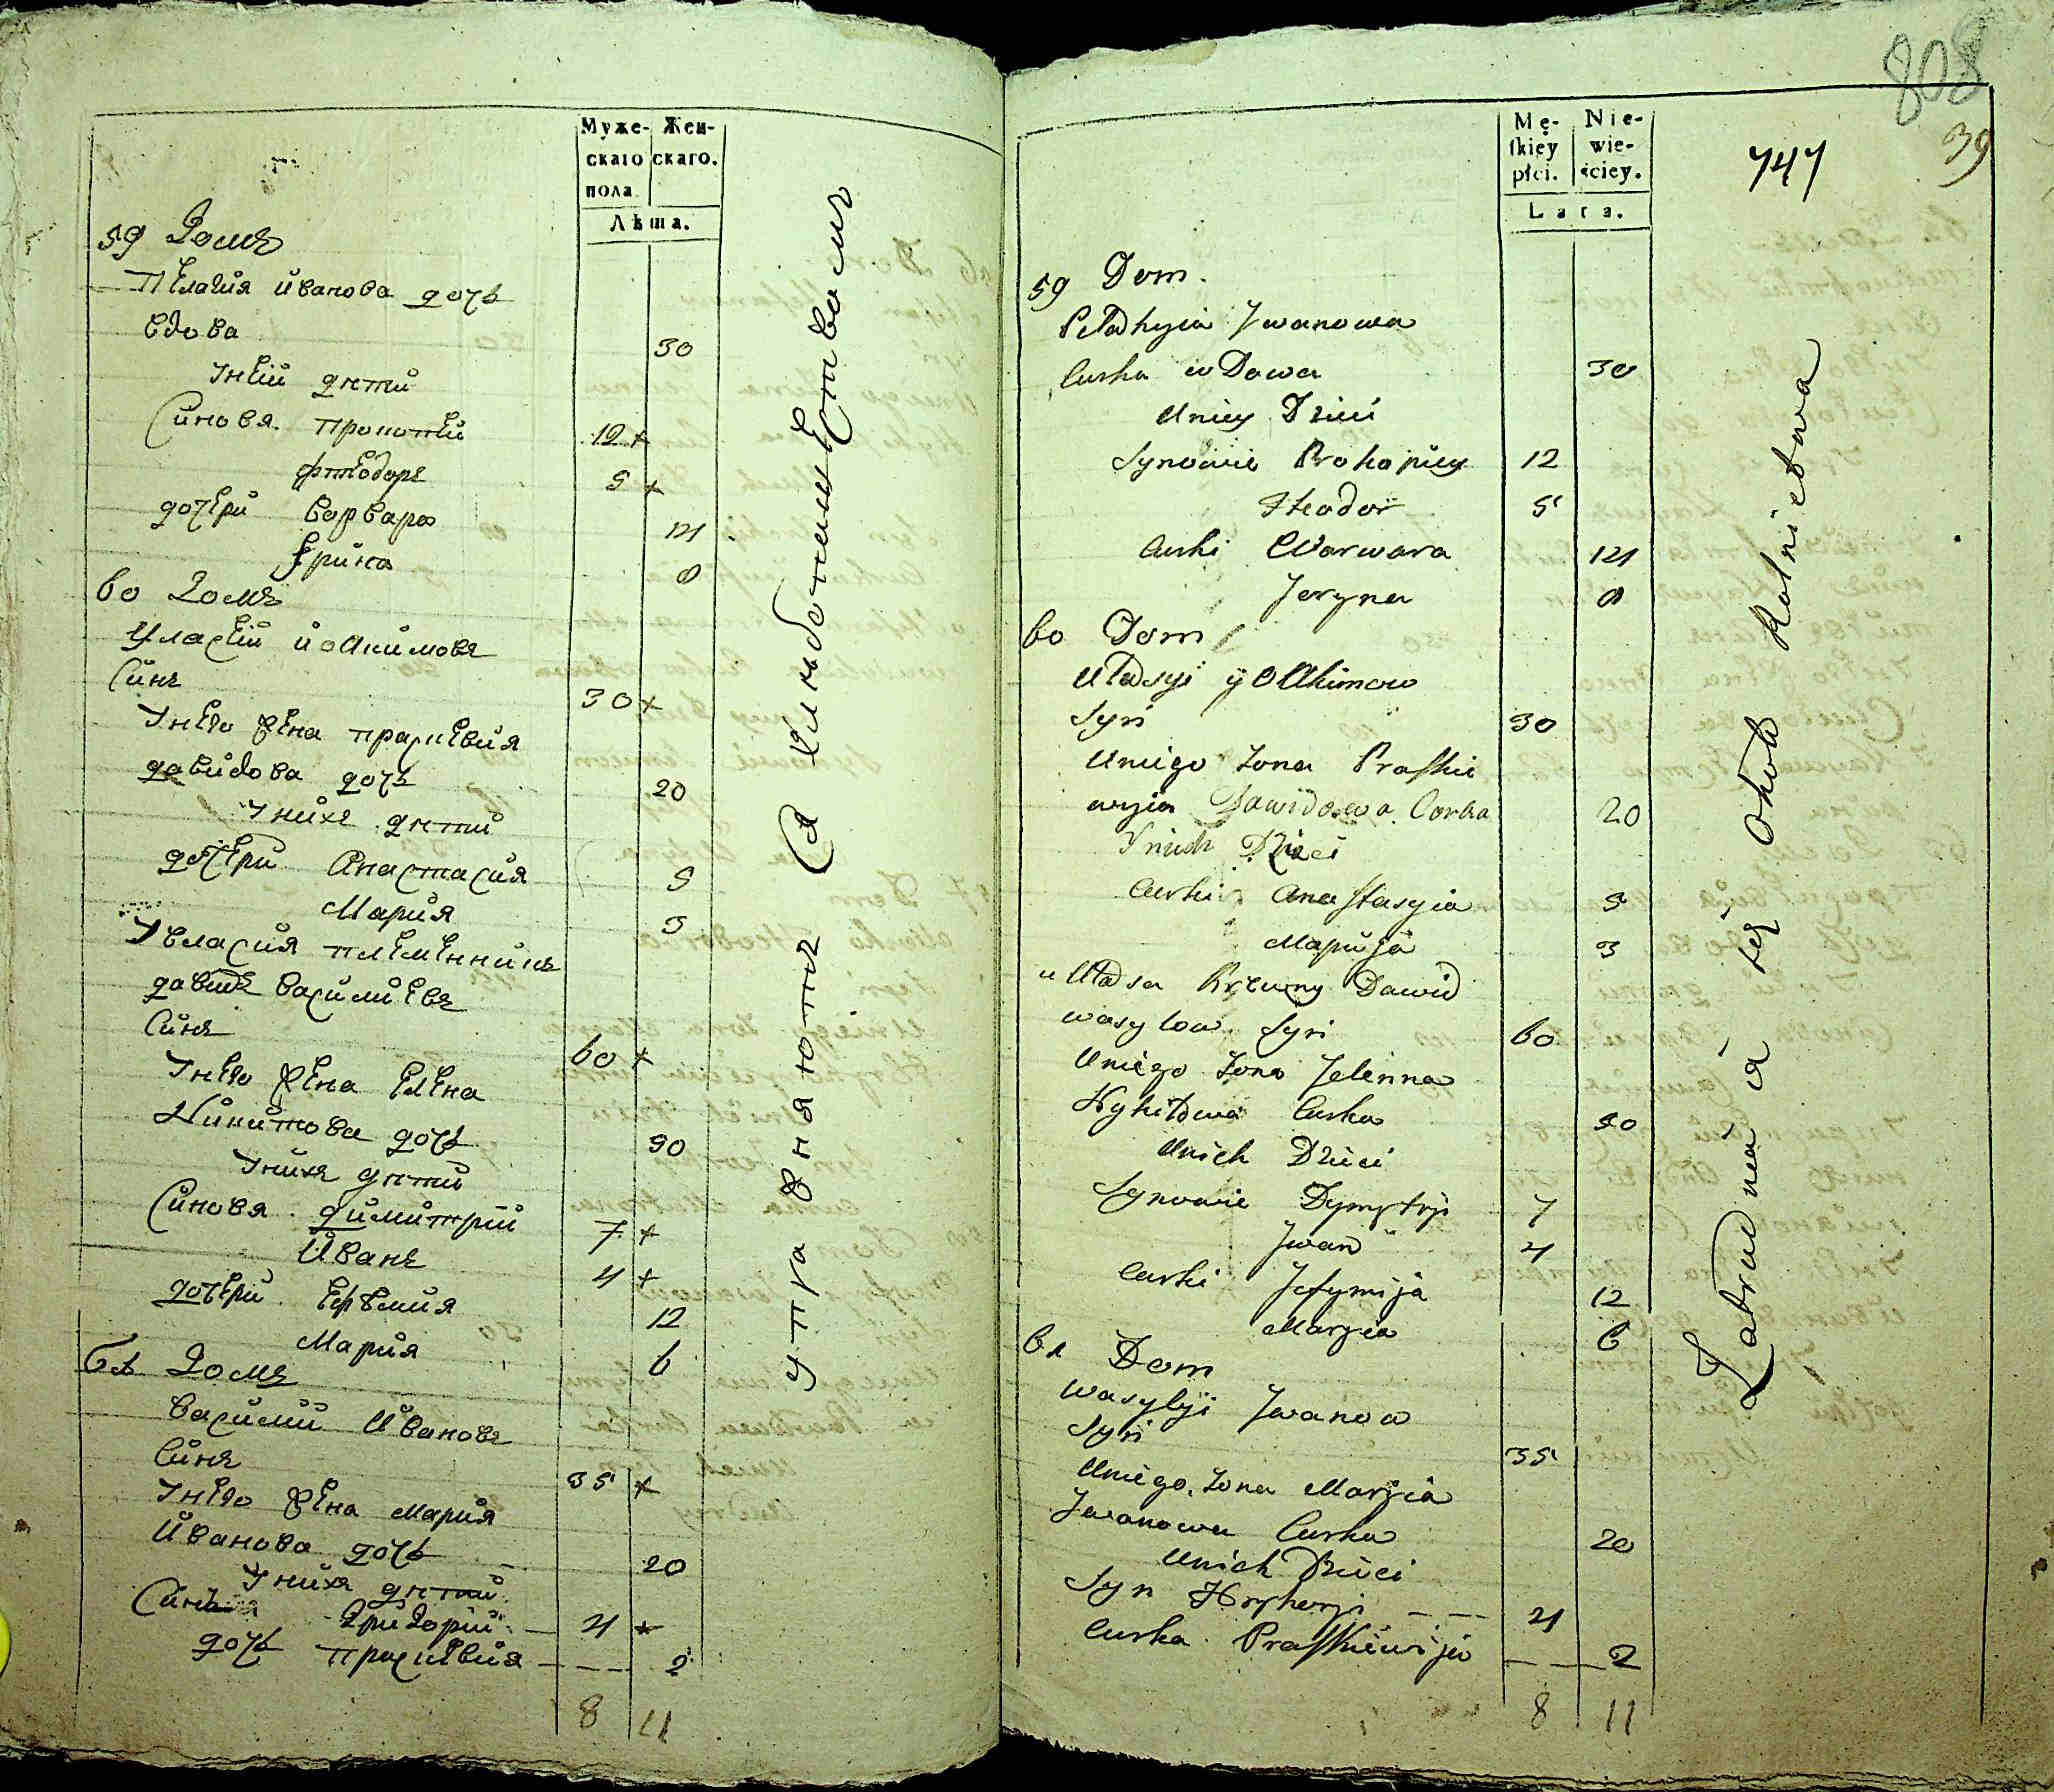 Муже- Жен-
скаго скаго.
пола
Лѣта.
59 Домъ
Пелагия Иванова дочь
вдова 30
Унеій дѣти
Синовя Прокопей 12 +
Фтеодоръ 5 +
дочери Варвара 14
Ерина 8
60 Домъ
Уласей Иоакимовъ
Синъ 30 +
Унего жена Праскевия
давидова дочь 20
Унихъ дѣти
дочери Анастасия 5
Мария 3
Увласия племенникъ
давидъ василиевъ
Синъ 60 +
Унего жена Елена
Никитова дочь 50
Унихъ дѣти
Синовя димитрій 7 +
Иванъ 4 +
дочери Ефѣмия 12
Мария 6
61 Домъ
Василий Ивановъ
Синъ 35 +
Унего жена Мария
Иванова дочь 20
Унихъ дѣти
Синъ Григорій 4 +
дочь Праскевия 2
8 11
упражняются хлебопашеством
808
39
747
Mę- Nie-
skiey wie-
płci. ściey.
Lata.
59 Dom.
Pelahyia Jwanowa
Curka wDowa 30
Uniey Dzieci
Synowie Prokopiey 12
Fteodor 5
Curki Warwara 14
Jeryna 8
60 Dom
Ułasyi ÿOAkimow
Syn 30
Uniego Zona Praskie
wyia Dawidowa Corka 20
Ynich Dzieci
Curki Anastasyia 5
Mapuja 3
u Ułasa Krewny Dawid
wasylow Syn 60
Uniego Zona Jelenna
Nykitowa Curka 50
Unich Dzieci
Synowie Dymytryi 7
Jwan 4
Curki Jefymija 12
Maryia 6
61 Dom
Wasylyi Jwanow
Syn 35
Uniego Zona Maryia
Jwanowa Curka 20
Unich Dzieci
Syn Hryhoryi 4
Curka Praskiewija 2
8 11
Zatrudniaią się Około Rolnictwa